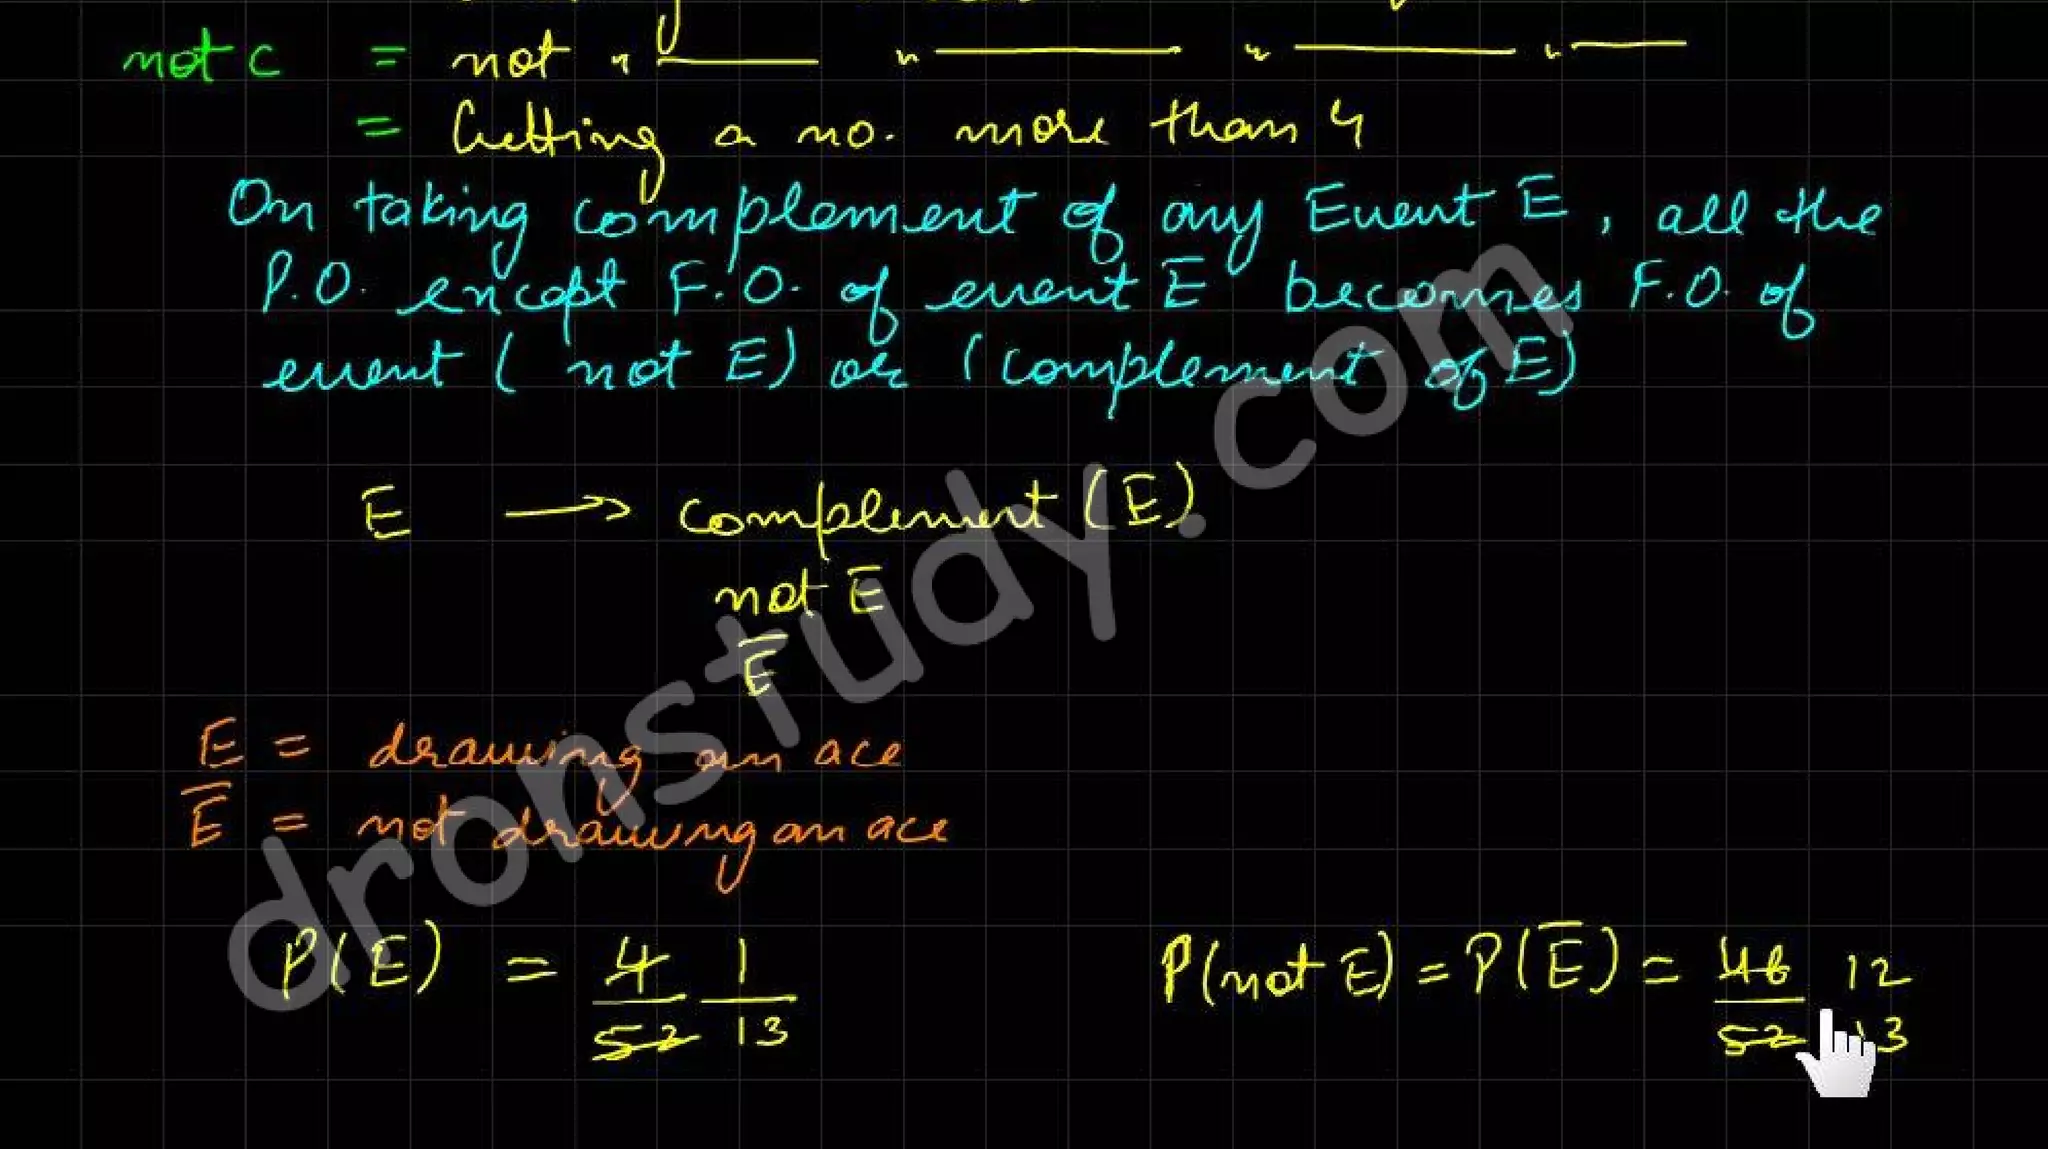 not c = not " " " "
= Getting a no. more than 4
On taking complement of any Event E, all the
P.O. except F.O. of event E becomes F.O. of
event (not E) or (complement of E)
E → complement (E)
not E
E̅
E = drawing an ace
E̅ = not drawing an ace
P(E) = 4/52 1/13
P(not E) = P(E̅) = 48/52 12/13
dronstudy.com